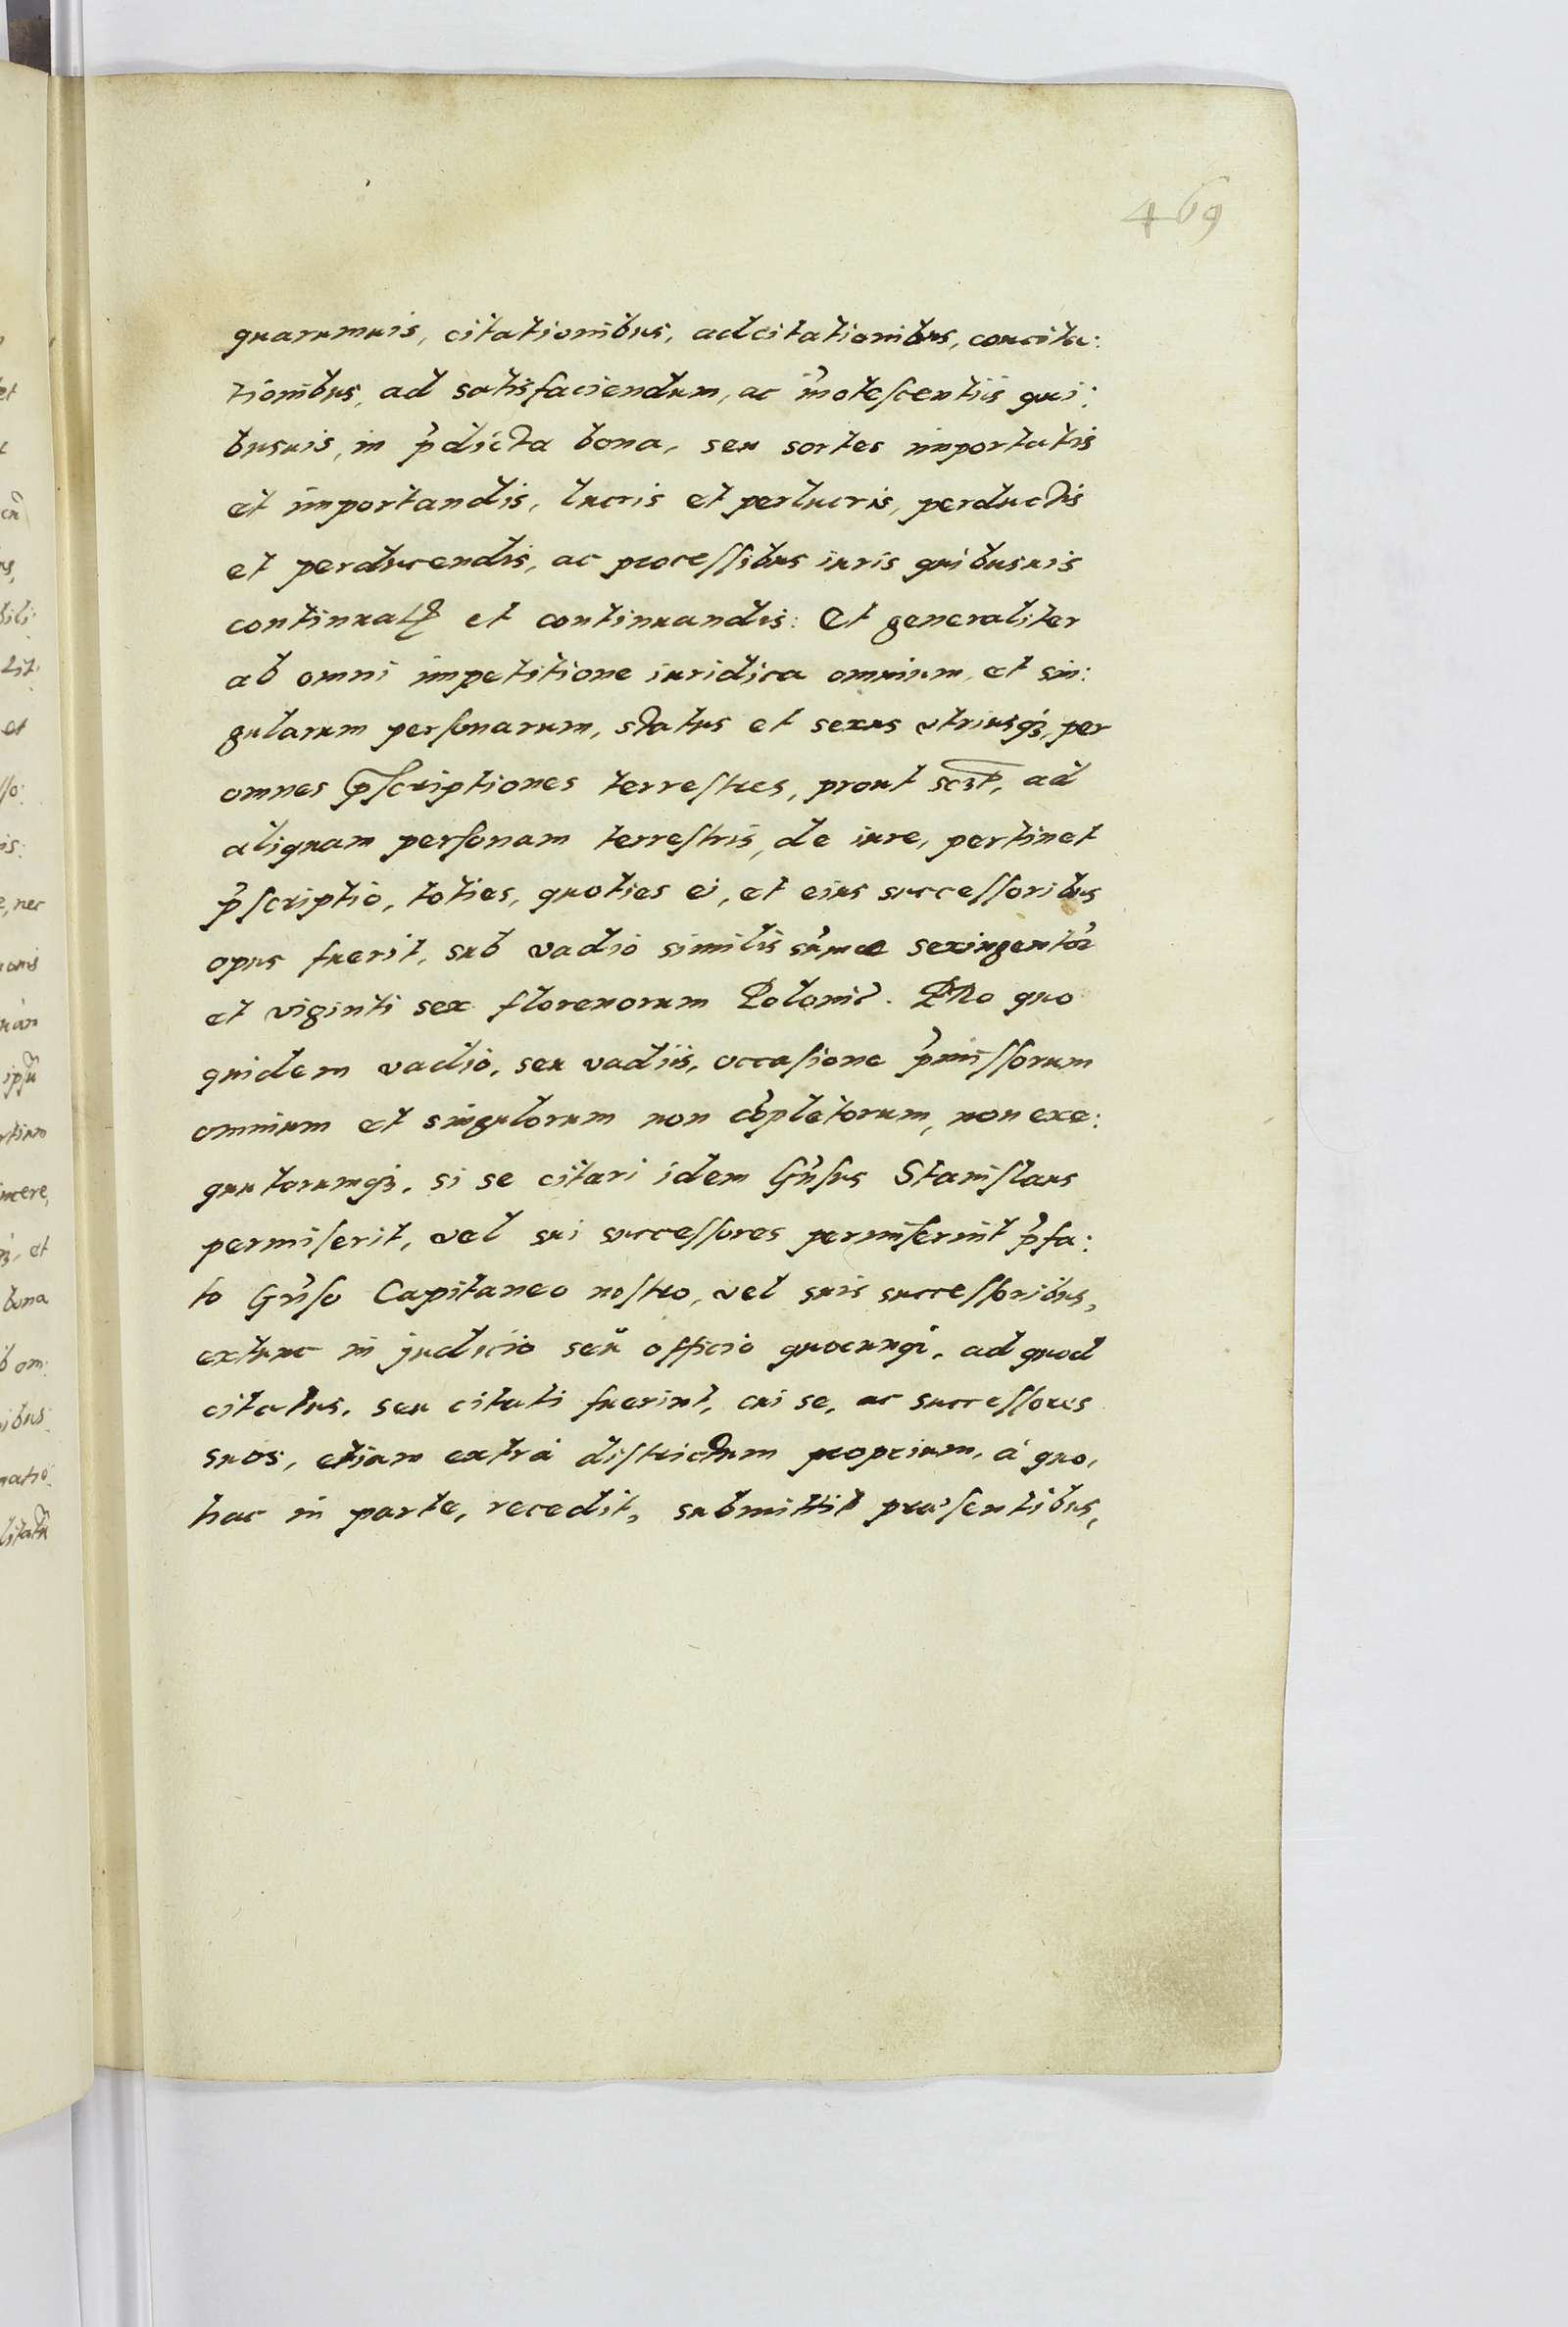 469
quarumuis, citationibus, adcitationibus, concita:
tionibus, ad satisfaciendum, ac īnoteſcentiis qui:
busuis, in p̄dicta bona, seu sortes importatis
et importandis, lucris et perlucris, perductis
et perducendis, ac proceſſibus iuris quibusuis
continuatꝭ et continuandis: Et generaliter
ab omni impetitione iuridica omnium, et sin:
gularum perſonarum, status et sexus vtriusqꝫ, per
omnes p̄ſcriptiones terreſtres, prout ad
aliquam perſonam terreſtris, de iure, pertinet
p̄ſcriptio, toties, quoties ei, et eius succeſſoribus
opus fuerit, sub vadio similis sūmæ sexingentoꝝ
et viginti sex florenorum Poloni͡c. PRo quo
quidem vadio, seu vadiis, occaſione p̄miſſorum
omnium et singulorum non cōpletorum, non exe:
quutorumqꝫ, si se citari idem Gn̄ſus Staniſlaus
permiſerit, vel sui succeſſores permiſerint p̄fa:
to Gn̄ſo Capitaneo noſtro, vel suis succeſſoribus,
extunc in judicio seŭ officio quocunqꝫ, ad quod
citatus, seu citati fuerint, cui se, ac succeſſores
suos, etiam extrà diſtrictum proprium, à quo,
hac in parte, recedit, submittit præſentibus,
et
nec
et
bona
incere,